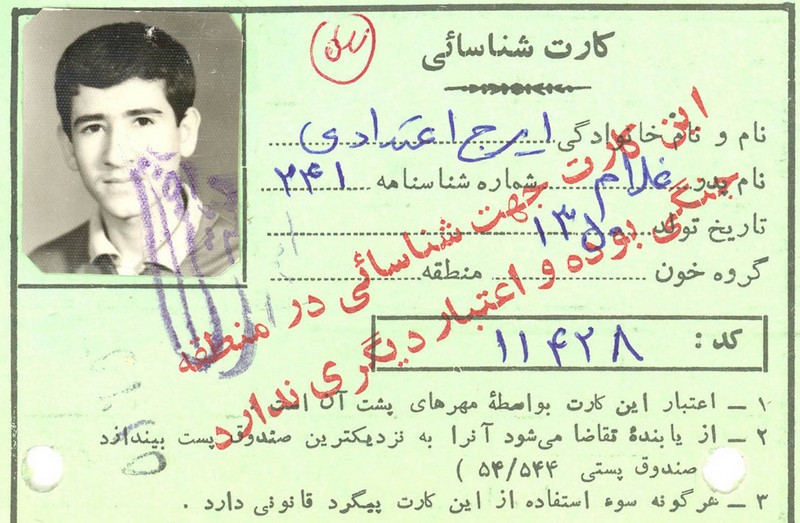 کارت شناسائی
نام و نام خانوادگی ایرج اعتدادی
نام پدر غلام شماره شناسنامه ۲۴۱
تاریخ تولد
گروه خون منطقه
کد : ۱۱۴۲۸
۱ ــ اعتبار این کارت بواسطهٔ مهرهای پشت آن است
۲ ــ از یابندهٔ تقاضا می‌شود آنرا به نزدیکترین صندوق پست بیندازد
صندوق پستی ۵۴/۵۴۴ )
۳ ــ هرگونه سوء استفاده از این کارت پیگرد قانونی دارد .
این کارت جهت شناسائی در منطقه
جنگی بوده و اعتبار دیگری ندارد